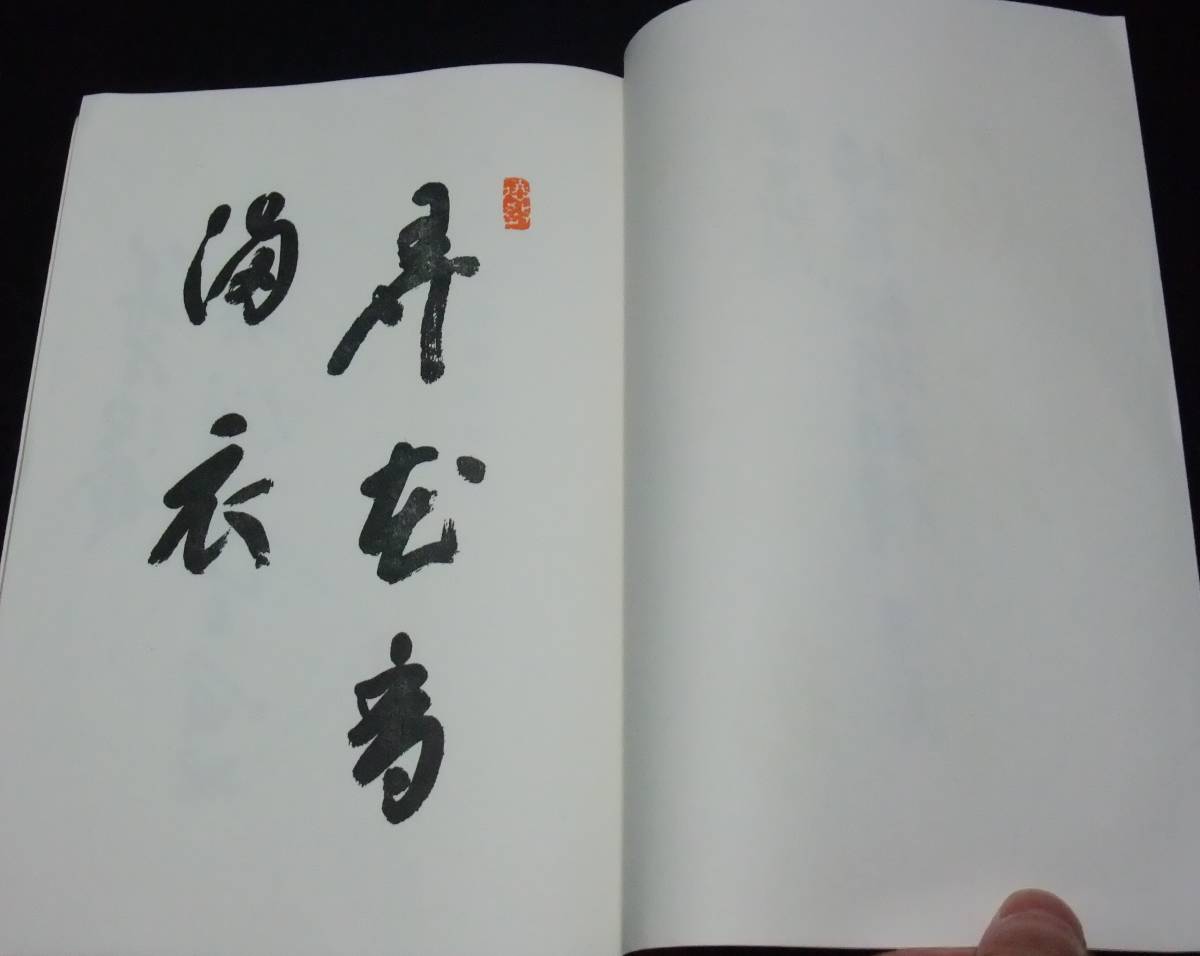 弄花香
満衣